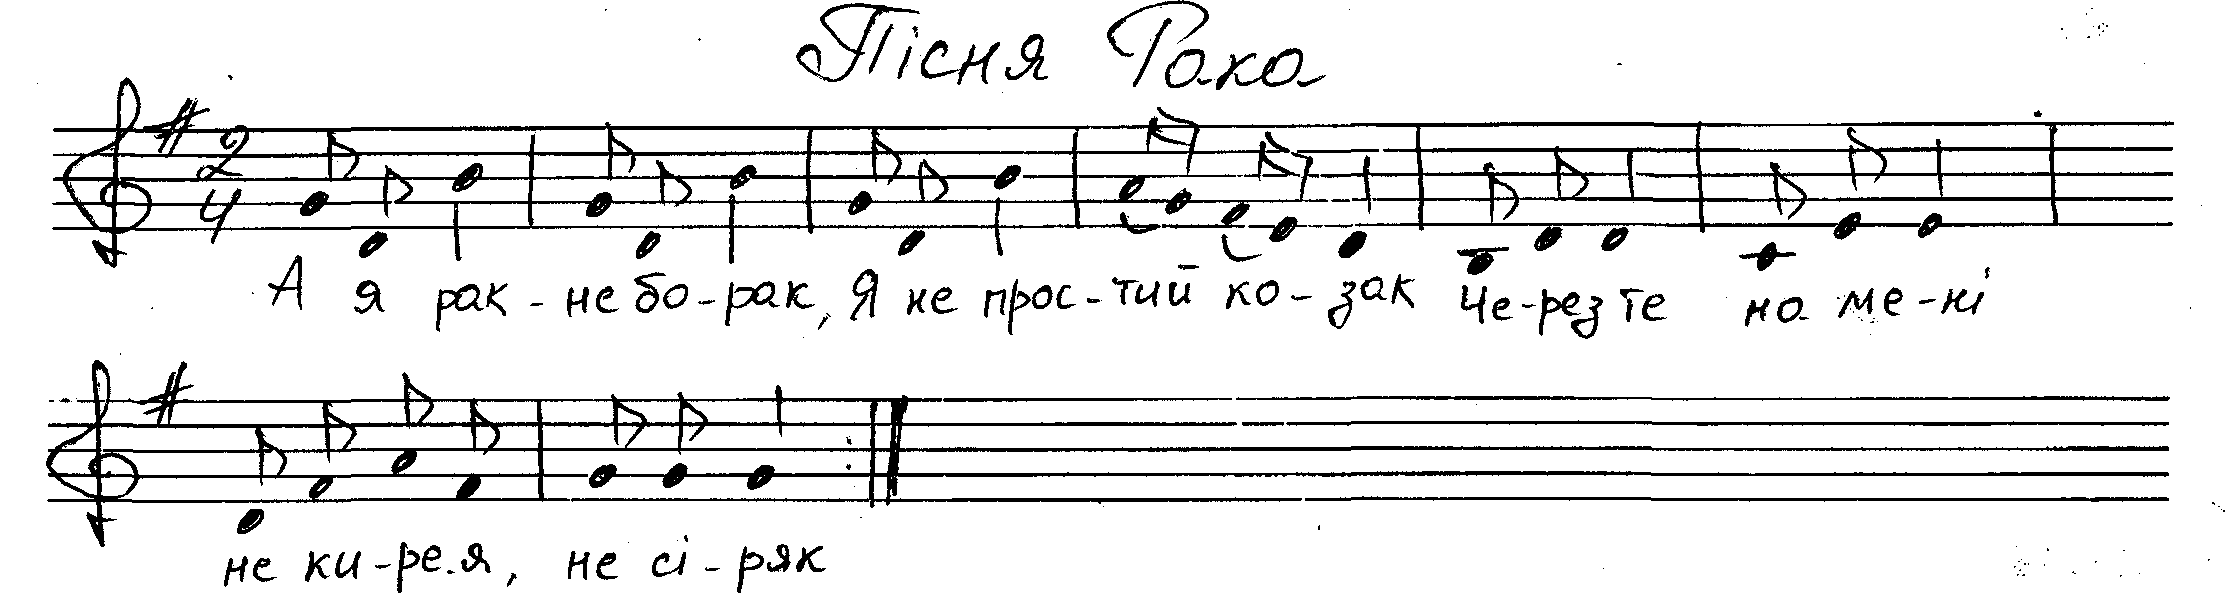 Пісня Рака
2
4
А я рак - небо-рак, Я не прос-тий ко-зак Че-рез те на ме-ні
не ки-ре-я, не сі-ряк